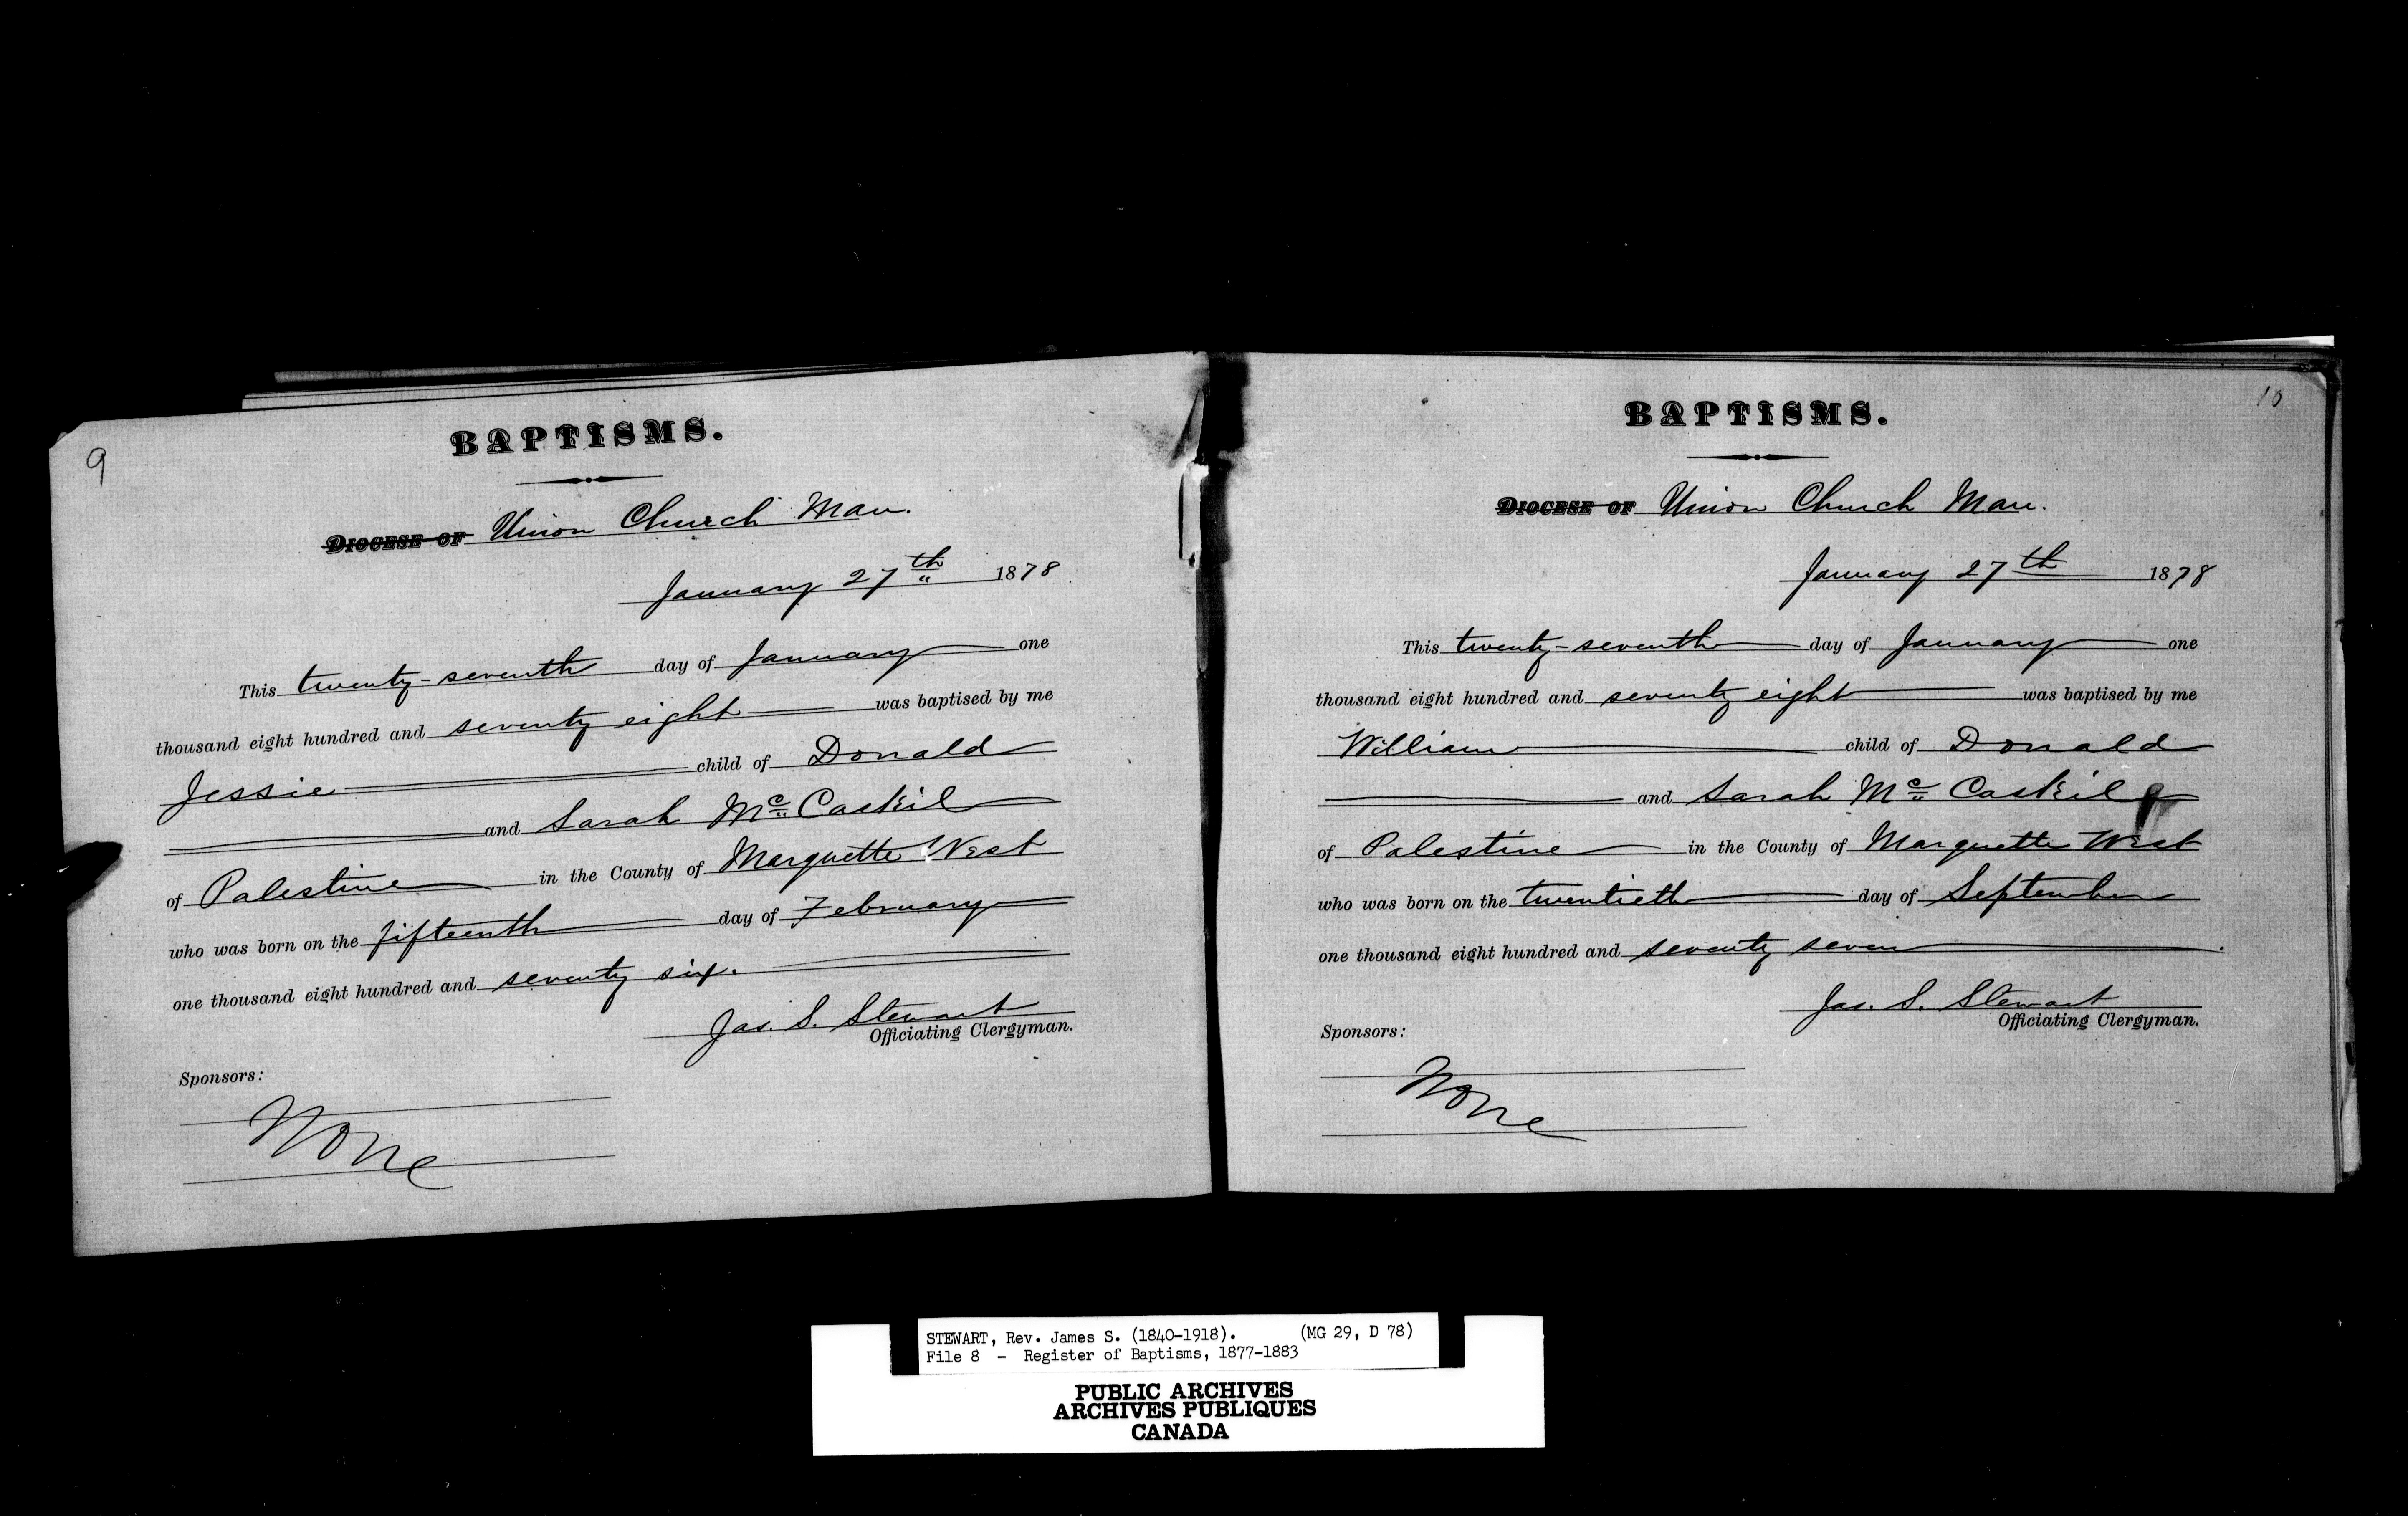 9
BAPTISMS.
DIOCESE OF Union Church Man.
January 27th 1878
This twenty-seventh day of January one
thousand eight hundred and seventy eight was baptised by me
Jessie child of Donald
and Sarah Mc Caskil
of Palestine in the County of Marquette West
who was born on the fifteenth day of February
one thousand eight hundred and seventy six.
Jas. S. Stewart
Officiating Clergyman.
Sponsors:
None
10
BAPTISMS.
DIOCESE OF Union Church Man.
January 27th 1878
This twenty-seventh day of January one
thousand eight hundred and seventy eight was baptised by me
William child of Donald
and Sarah Mc Caskil
of Palestine in the County of Marquette West
who was born on the twentieth day of September
one thousand eight hundred and seventy seven.
Jas. S. Stewart
Officiating Clergyman.
Sponsors:
None
STEWART, Rev. James S. (1840-1918). (MG 29, D 78)
File 8 - Register of Baptisms, 1877-1883
PUBLIC ARCHIVES
ARCHIVES PUBLIQUES
CANADA